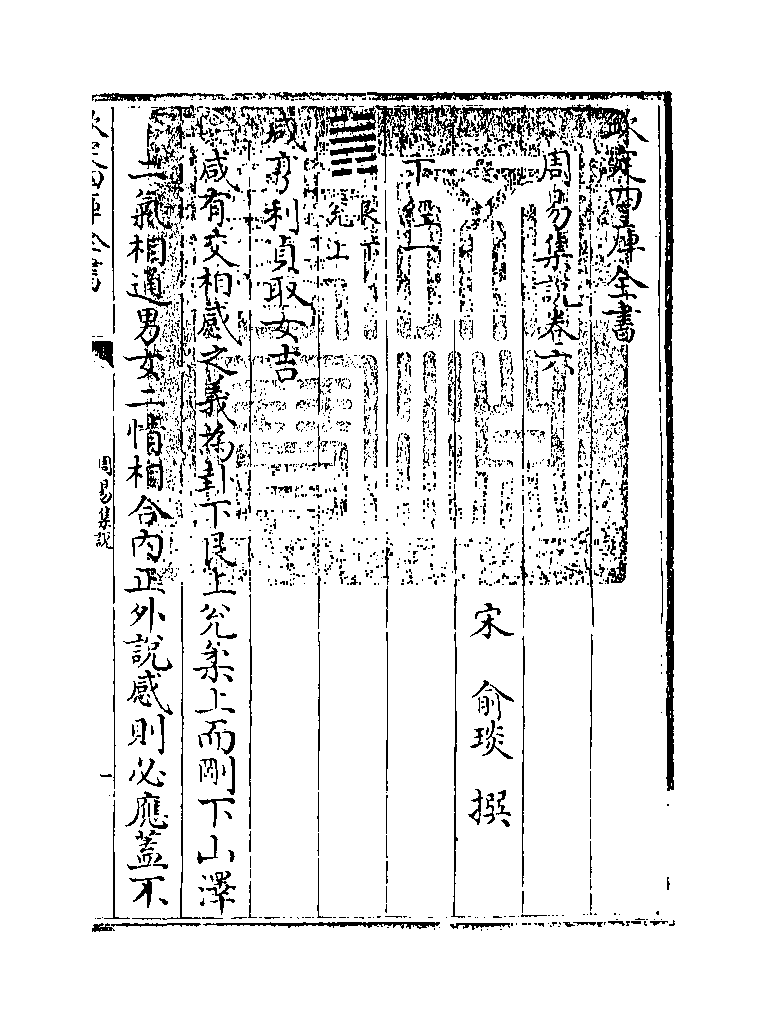 欽定四庫全書
周易集說卷六
宋 俞琰 撰
下經一
䷞艮下兌上
咸亨利貞取女吉
咸有交相感之義為卦下艮上兌柔上而剛下山澤
二氣相通男女二情相合內正外說感則必應蓋不
欽定四庫全書
周易集說
一